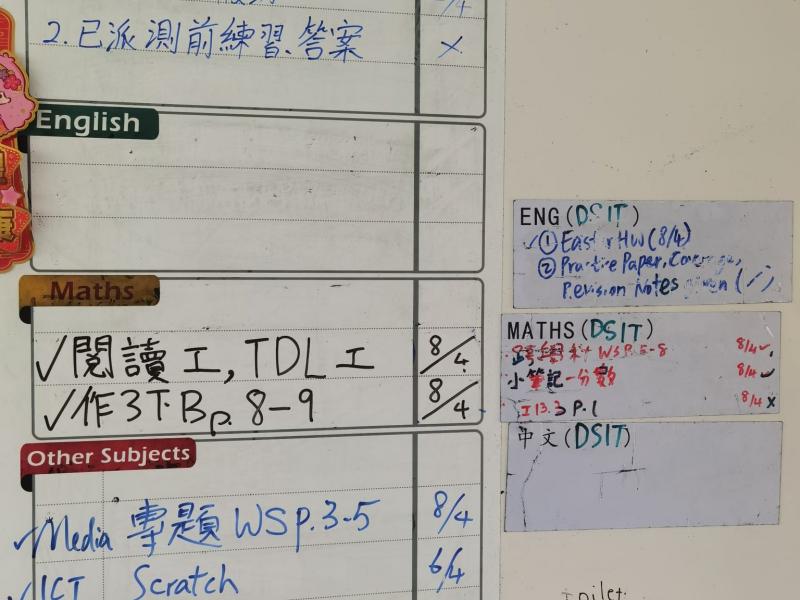 2. 已派測前練習、答案 x
English
Maths
✓閱讀工, TDL工 8/4
✓作3T.B p. 8-9 8/4
Other Subjects
✓Media 專題 WS P.3-5 8/4
✓ICT Scratch 6/4
ENG (DSIT)
✓① Easter HW (8/4)
② Practice Paper, Coverage,
Revision Notes given (/)
MATHS (DSIT)
WS P.5-8 8/4✓
小筆記-分數 8/4✓
工13.3 P.1 8/4 x
中文 (DSIT)
Toilet: